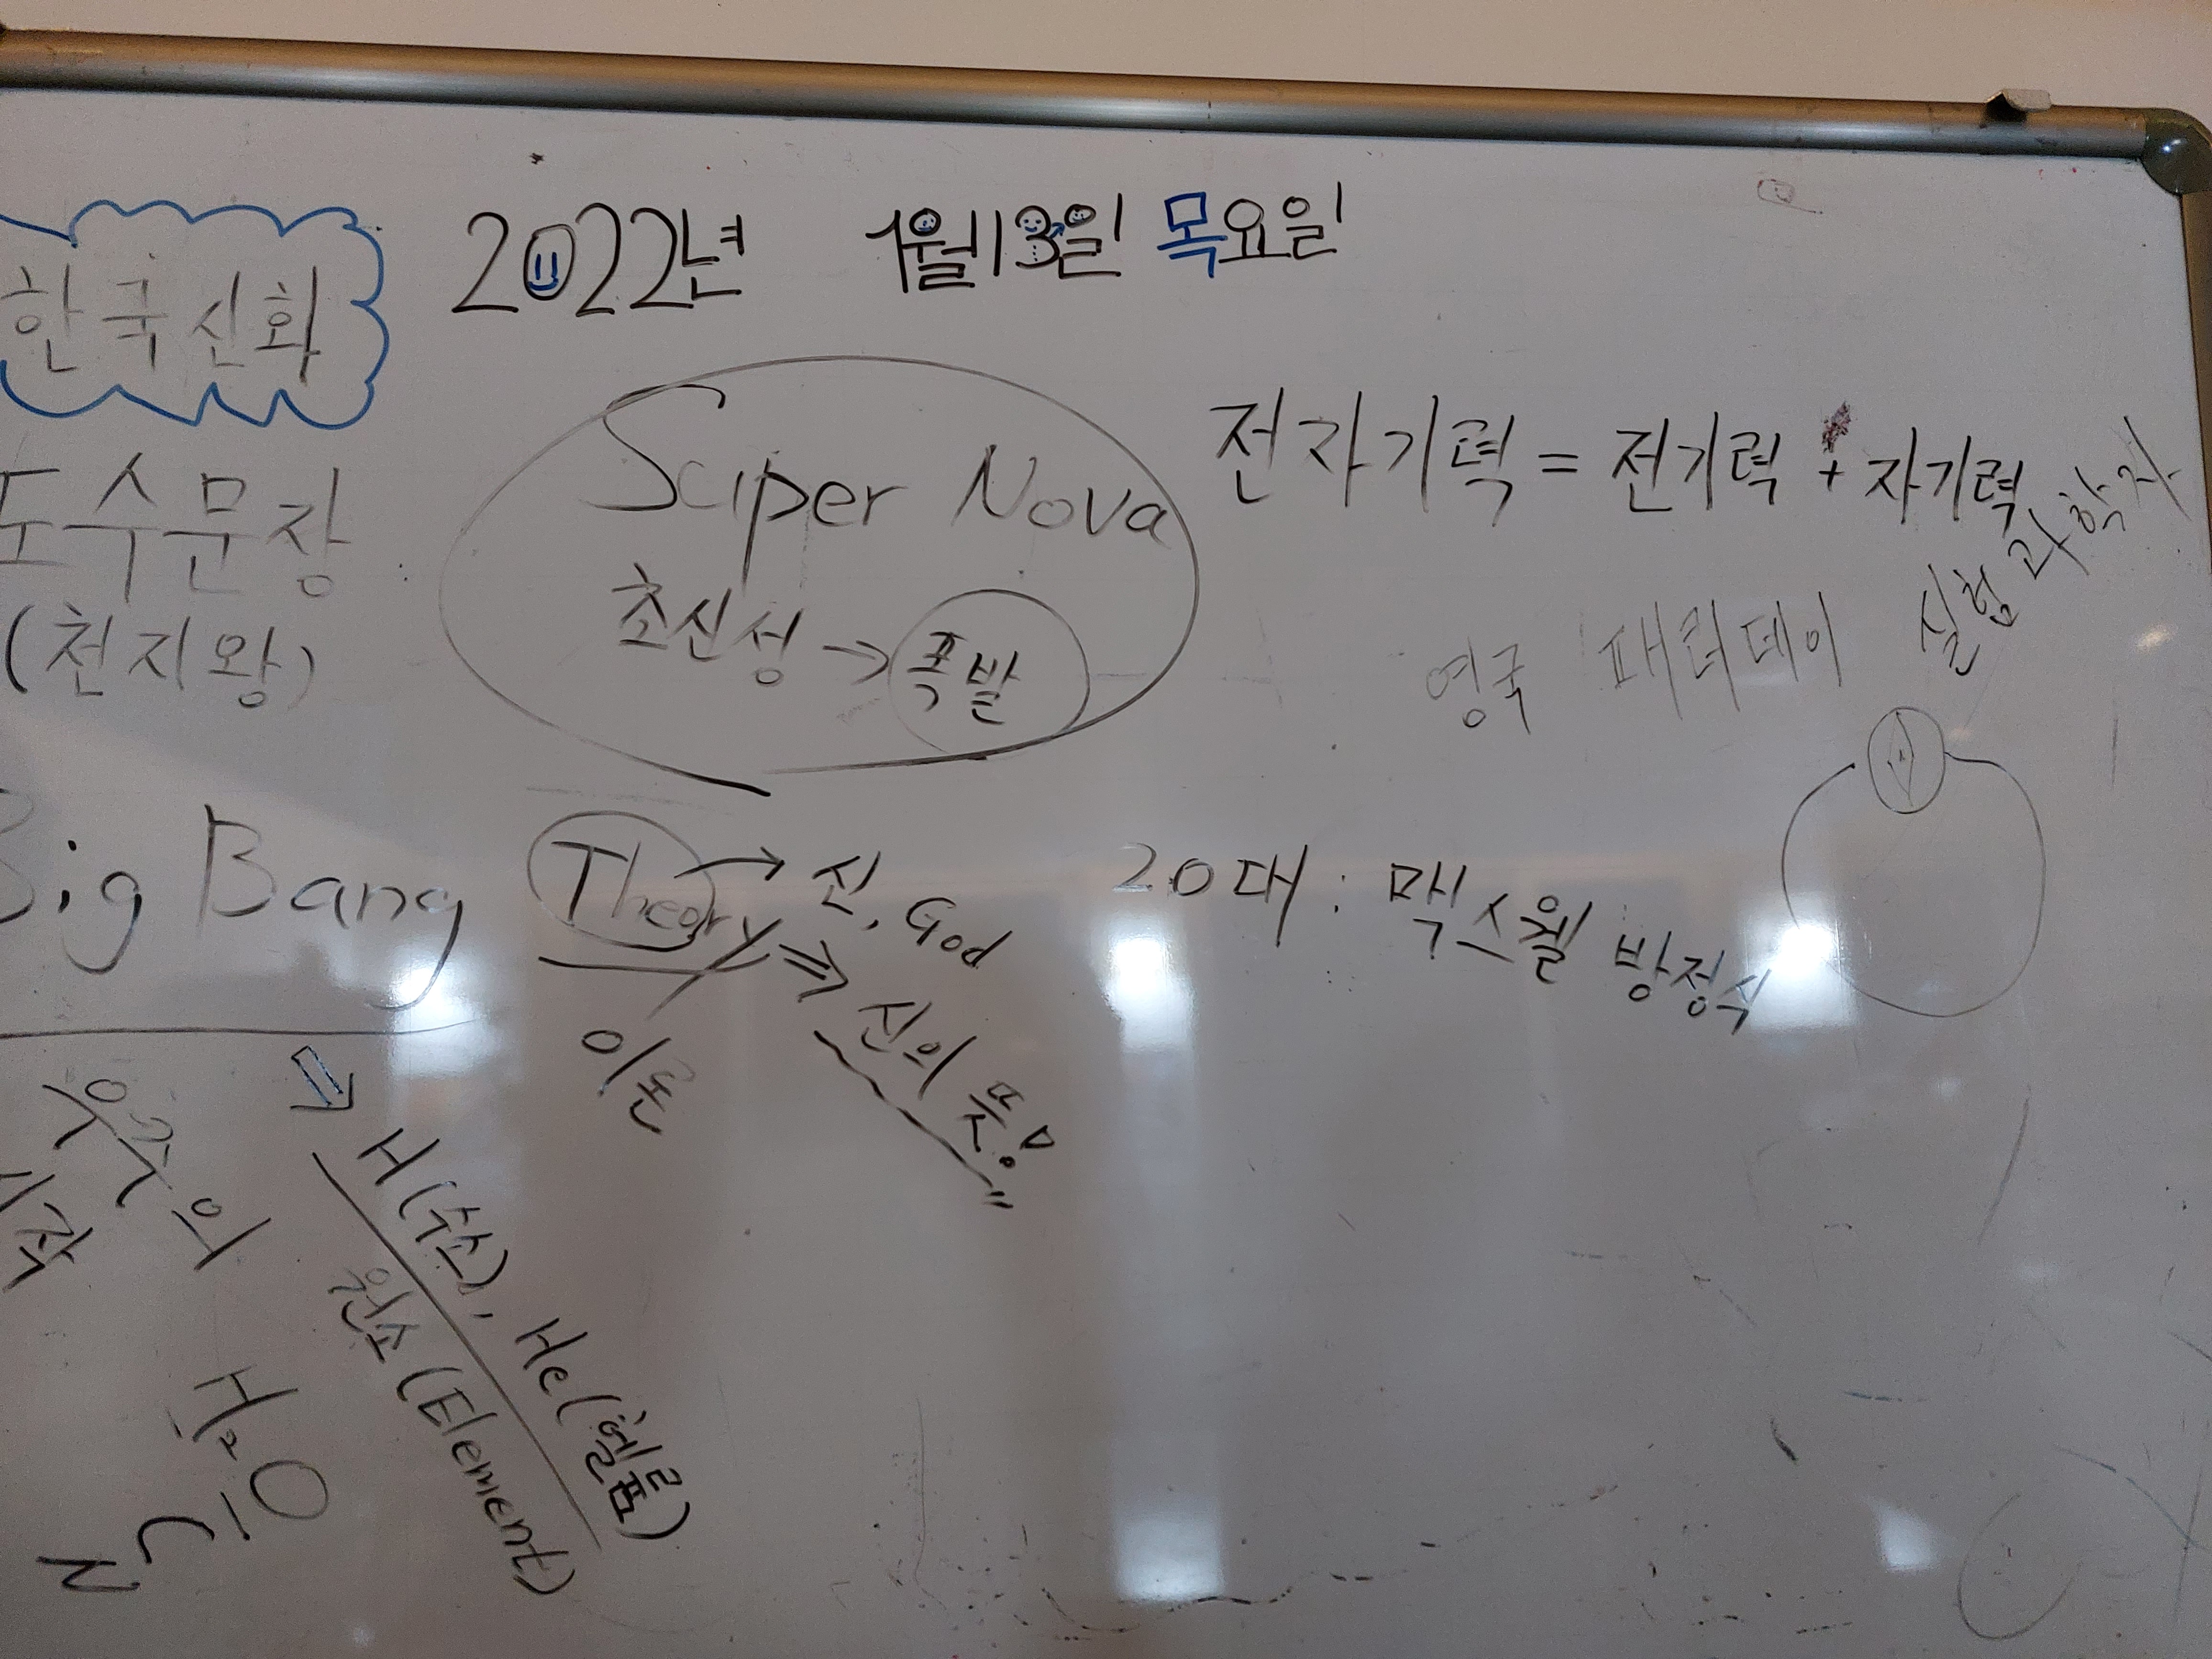 2022년 1월 13일 목요일
한국신화
도수문장
(천지왕)
Super Nova
초신성 → 폭발
전자기력 = 전기력 + 자기력
영국 패러데이 실험 과학자
Big Bang Theory → 신, God
⇒ 신의 뜻!
이론
20대 : 맥스웰 방정식
우주의
시작
⇒ H(수소), He(헬륨)
원소 (Element)
H2O
C
N